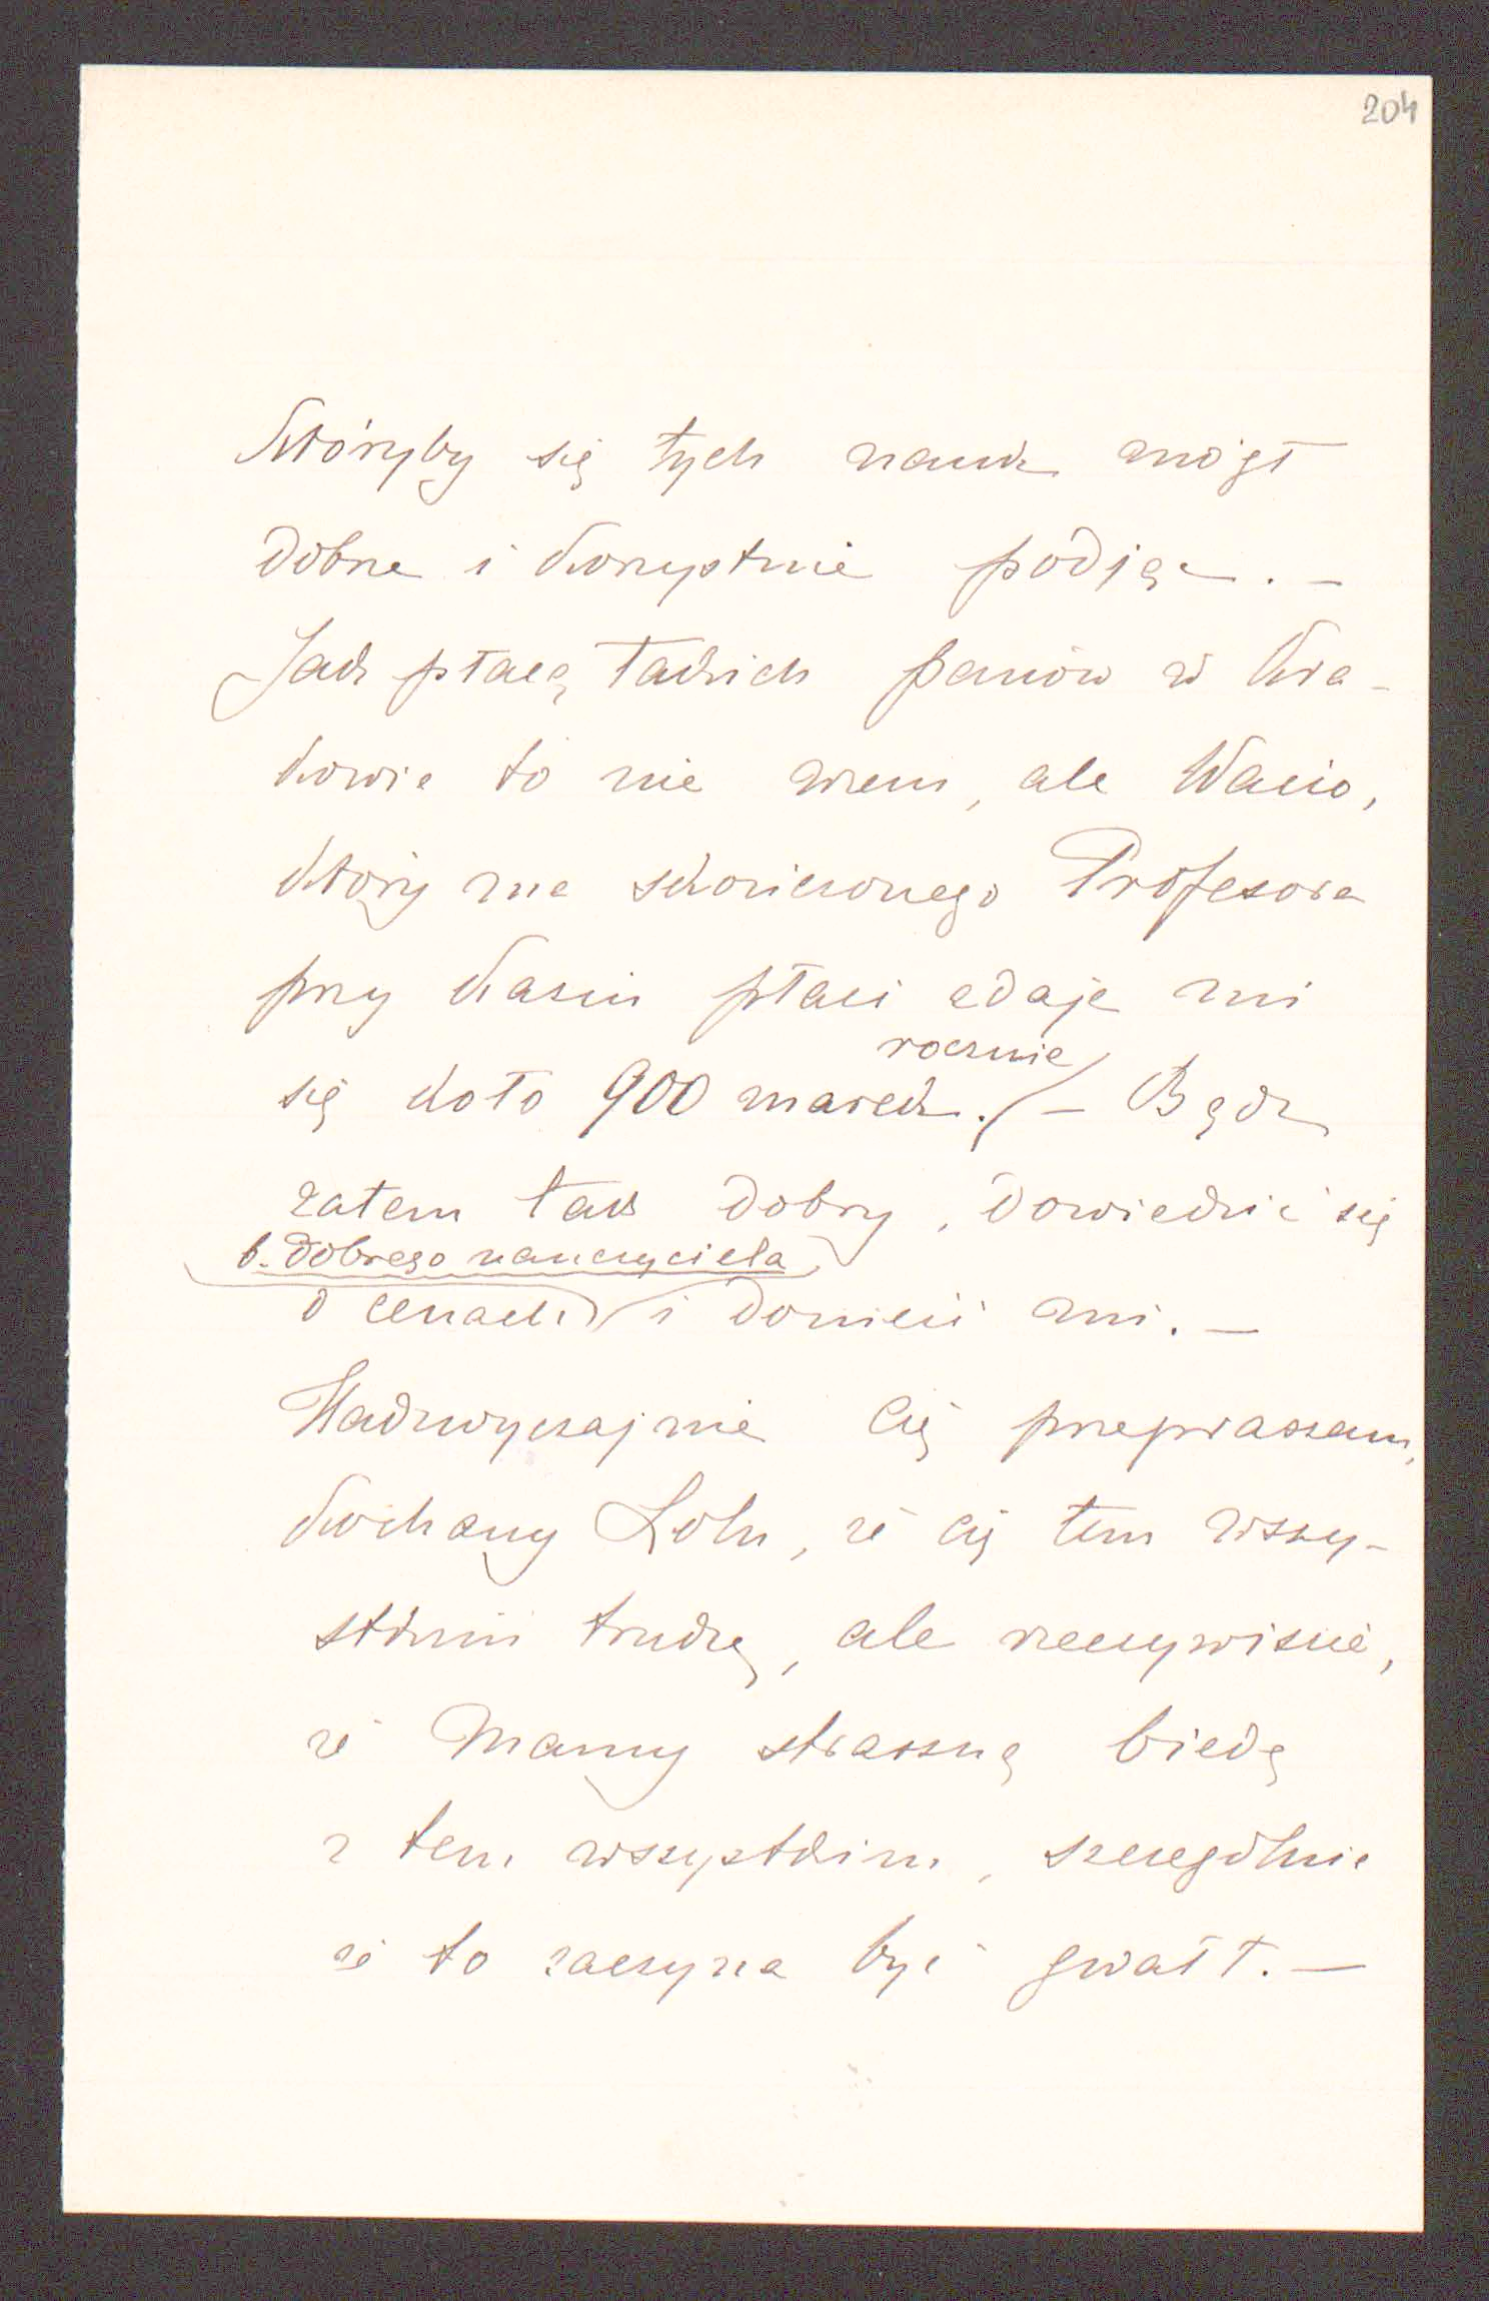 204
któryby się tych nauk mógł
dobrze i korzystnie podjąć. —
Jak płacą takich panów w Kra-
kowie to nie wiem, ale Wacio,
który ma skończonego Profesora
przy Kaziu płaci zdaje mi
rocznie
się koło 900 marek. — Bądź
zatem tak dobry, dowiedzieć się
b. dobrego nauczyciela
o cenach i donieść mi. —
Nadzwyczajnie Cię przepraszam,
kochany Lolu, że cię tem wszy-
stkiem trudzę, ale rzeczywiście,
że Mamy straszną biedę
z tem wszystkim, szczególnie
że to zaczyna być gwałt. —